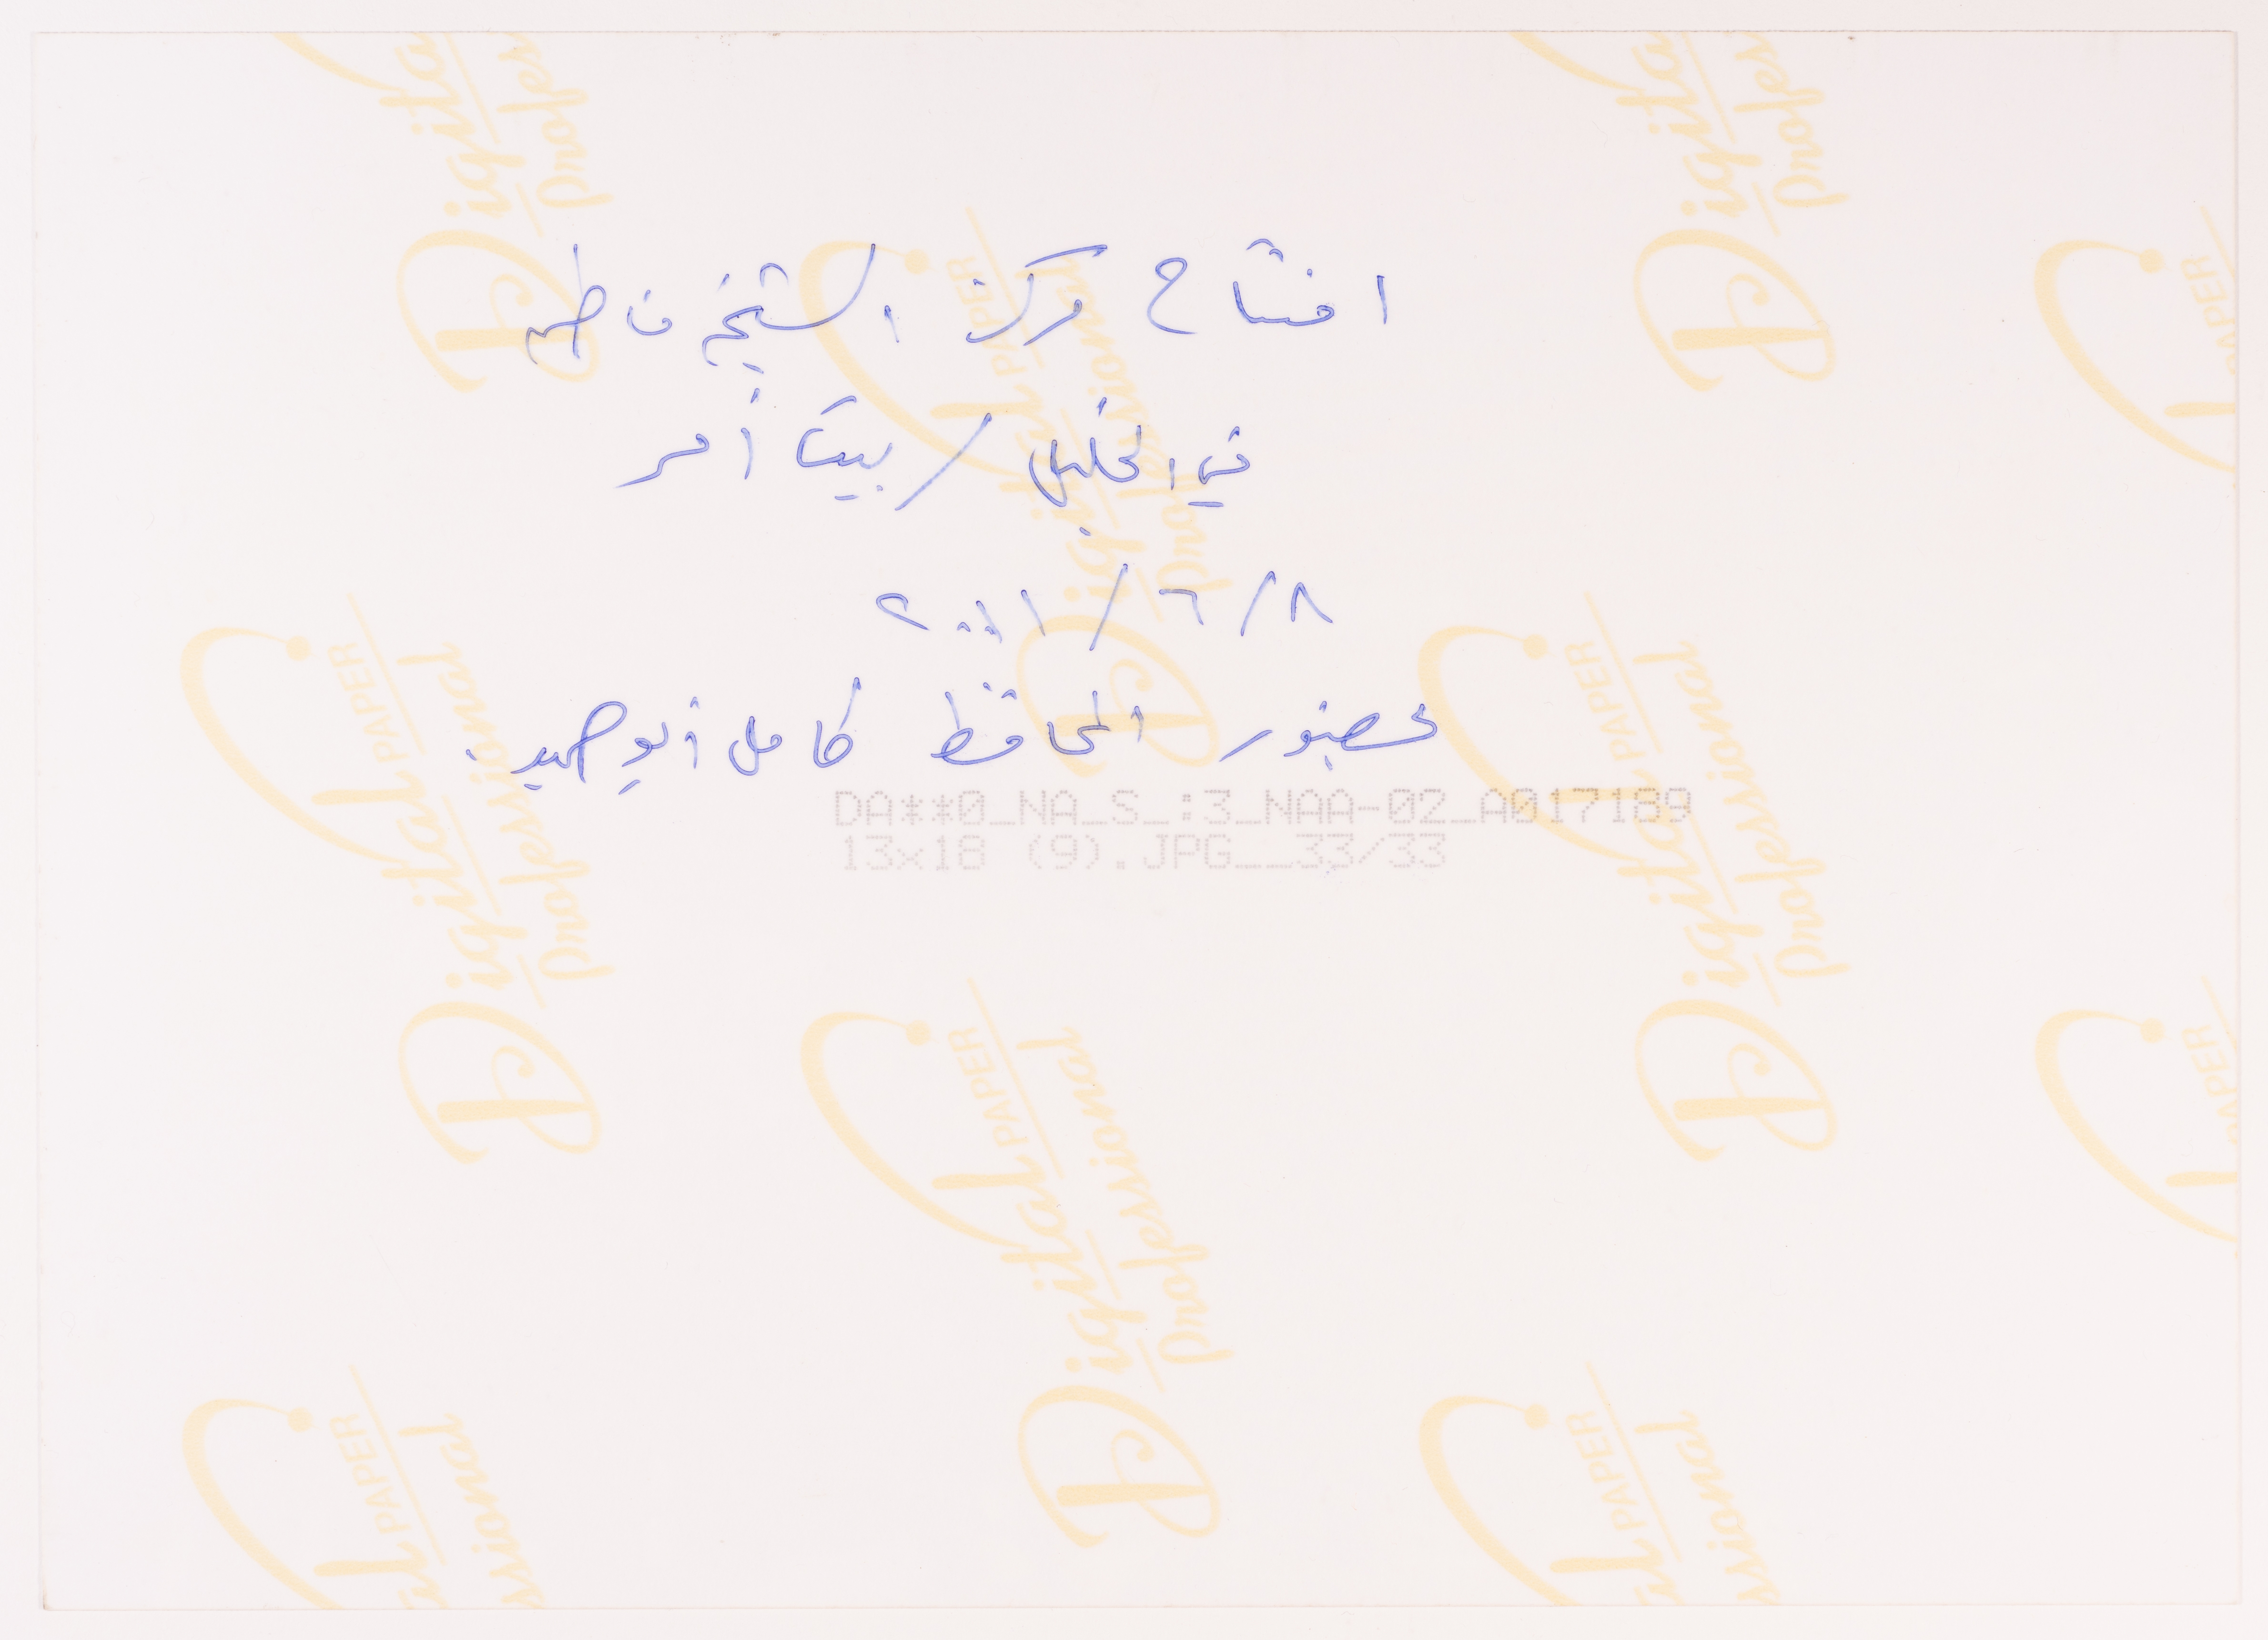 افتتاح مركز الشيخة فاطمة
في الخليل / بيت أمر
٨/ ٦ / ٢٠١١
بحضور المحافظ كامل أبو حميد
DA**0_NA_S_:3_NAA-02_A017189
13x18 (9).JPG__33/33
Digital PAPER
Professional